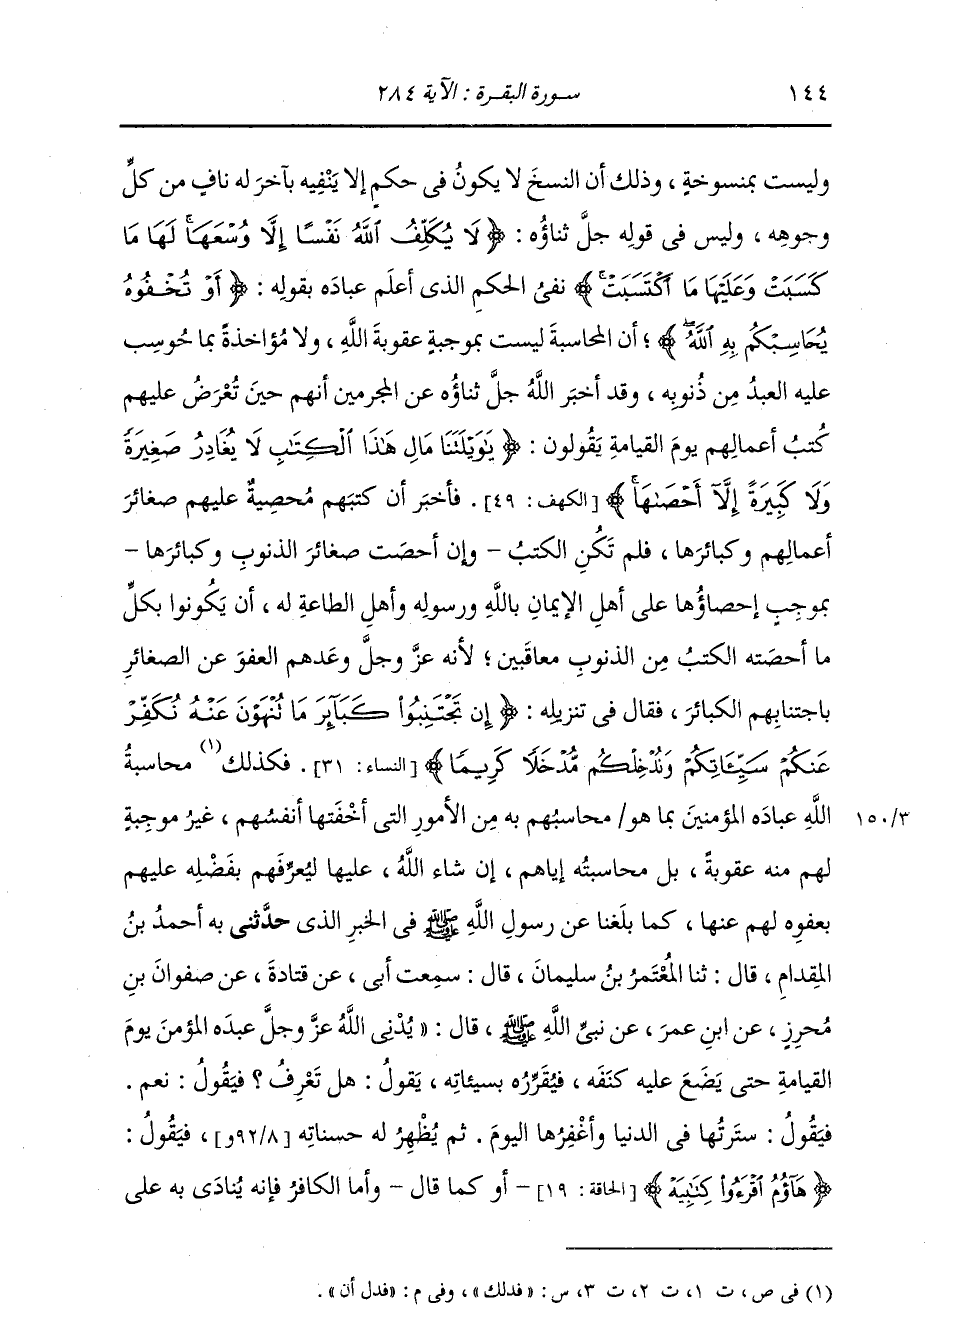 ١٤٤ سورة البقرة : الآية ٢٨٤
وليست بمنسوخةٍ ، وذلك أن النسخَ لا يكونُ فى حكمٍ إلا يَنْفِيه بآخرَ له نافٍ من كلِّ
وجوهِه ، وليس فى قولِه جلَّ ثناؤُه : ﴿ لَا يُكَلِّفُ ٱللَّهُ نَفْسًا إِلَّا وُسْعَهَاۚ لَهَا مَا
كَسَبَتْ وَعَلَيْهَا مَا ٱكْتَسَبَتْۗ ﴾ نفىُ الحكمِ الذى أعلَم عبادَه بقولِه : ﴿ أَوْ تُخْفُوهُ
يُحَاسِبْكُم بِهِ ٱللَّهُۖ ﴾ ؛ أن المحاسبةَ ليست بموجبةٍ عقوبةَ اللَّهِ ، ولا مُؤاخذةً بما حُوسِب
عليه العبدُ مِن ذُنوبِه ، وقد أخبَر اللَّهُ جلَّ ثناؤُه عن المجرمين أنهم حينَ تُعْرَضُ عليهم
كُتبُ أعمالِهم يومَ القيامةِ يَقُولون : ﴿ يَٰوَيْلَتَنَا مَالِ هَٰذَا ٱلْكِتَٰبِ لَا يُغَادِرُ صَغِيرَةً
وَلَا كَبِيرَةً إِلَّآ أَحْصَىٰهَاۚ ﴾ [الكهف : ٤٩] . فأخبَر أن كتبَهم مُحصِيةٌ عليهم صغائرَ
أعمالِهم وكبائرَها ، فلم تَكُنِ الكتبُ – وإن أحصَت صغائرَ الذنوبِ وكبائرَها –
بموجبٍ إحصاؤُها على أهلِ الإيمانِ باللَّهِ ورسولِه وأهلِ الطاعةِ له ، أن يَكُونوا بكلِّ
ما أحصَته الكتبُ مِن الذنوبِ معاقَبين ؛ لأنه عزَّ وجلَّ وعَدهم العفوَ عن الصغائرِ
باجتنابِهم الكبائرَ ، فقال فى تنزيلِه : ﴿ إِن تَجْتَنِبُوا۟ كَبَآئِرَ مَا تُنْهَوْنَ عَنْهُ نُكَفِّرْ
عَنكُمْ سَيِّـَٔاتِكُمْ وَنُدْخِلْكُم مُّدْخَلًا كَرِيمًا ﴾ [النساء : ٣١] . فكذلك (١) محاسبةُ
١٥٠/٣ اللَّهِ عبادَه المؤمنينَ بما هو/ محاسبُهم به مِن الأمورِ التى أخْفَتها أنفسُهم ، غيرُ موجبةٍ
لهم منه عقوبةً ، بل محاسبتُه إياهم ، إن شاء اللَّهُ ، عليها ليُعرِّفَهم بفَضْلِه عليهم
بعفوِه لهم عنها ، كما بلَغنا عن رسولِ اللَّهِ ﷺ فى الخبرِ الذى حدَّثنى به أحمدُ بنُ
المِقدامِ ، قال : ثنا المُعْتَمرُ بنُ سليمانَ ، قال : سمِعت أبى ، عن قتادةَ ، عن صفوانَ بنِ
مُحرِزٍ ، عن ابنِ عمرَ ، عن نبىِّ اللَّهِ ﷺ ، قال : « يُدْنِى اللَّهُ عزَّ وجلَّ عبدَه المؤمنَ يومَ
القيامةِ حتى يَضَعَ عليه كنَفَه ، فيُقَرِّرُه بسيئاتِه ، يَقولُ : هل تَعْرِفُ ؟ فيَقُولُ : نعم .
فيَقُولُ : ستَرتُها فى الدنيا وأغْفِرُها اليومَ . ثم يُظْهِرُ له حسناتِه [٩٢/٨و] ، فيَقُولُ :
﴿ هَآؤُمُ ٱقْرَءُوا۟ كِتَٰبِيَهْ ﴾ [الحاقة : ١٩] – أو كما قال – وأما الكافرُ فإنه يُنادَى به على
(١) فى ص ، ت ١، ت ٢، ت ٣، س : «فدلك» ، وفى م : «فدل أن» .